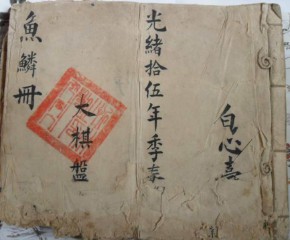 自心喜
光緒拾伍年季春
大棋盤
魚鱗冊